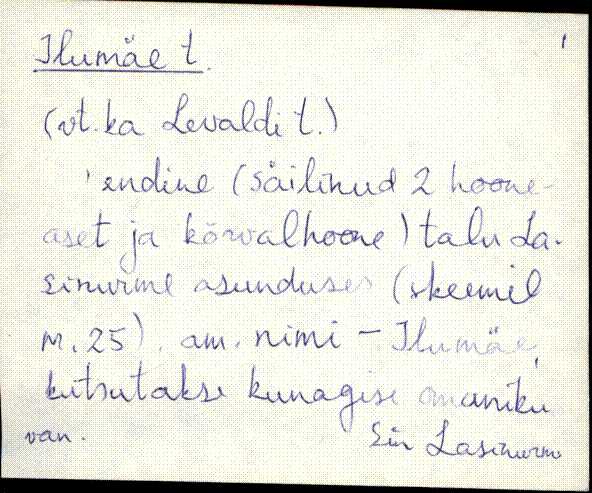 Ilumäe t. 1
(vt. ka Levaldi t.)
'endine (säilinud 2 hoone-
aset ja kõrvalhoone) talu La-
sinurme asunduses (skeemil
nr. 25). am. nimi – Ilumäe,
kutsutakse kunagise omaniku
van. Sim Lasinurm